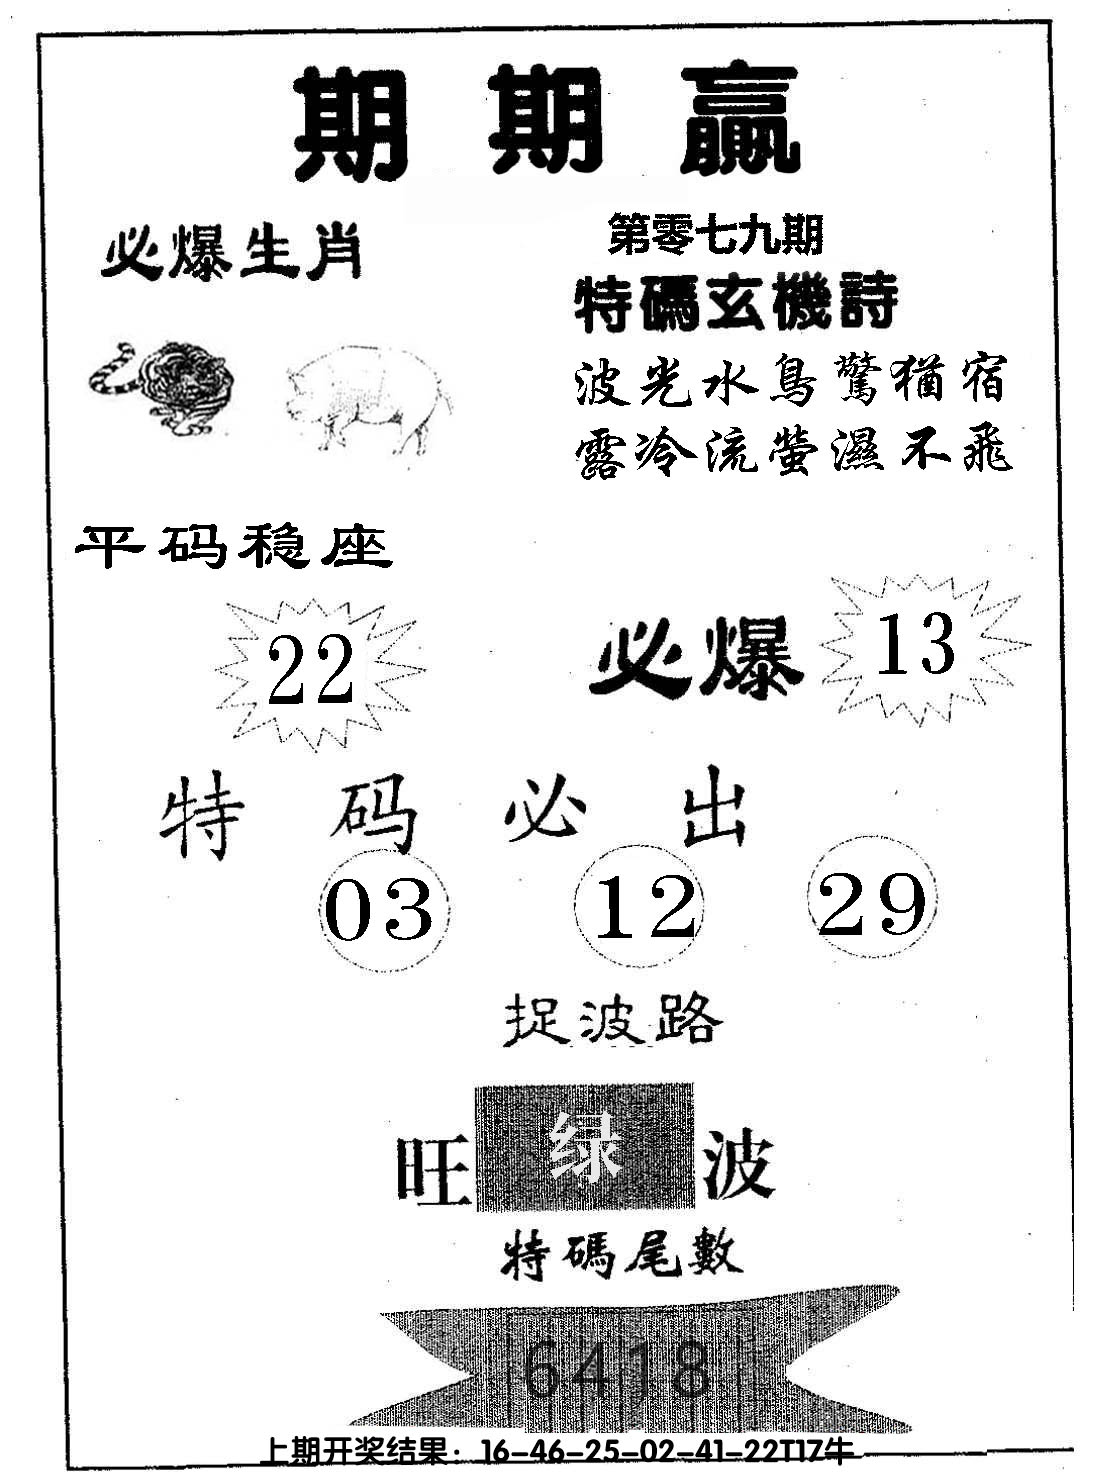 期期赢
必爆生肖
第零七九期
特碼玄機詩
波光水鳥驚猶宿
露冷流螢濕不飛
平码稳座
22
必爆 13
特码必出
03 12 29
捉波路
旺 绿 波
特碼尾數
6418
上期开奖结果：16-46-25-02-41-22T17牛